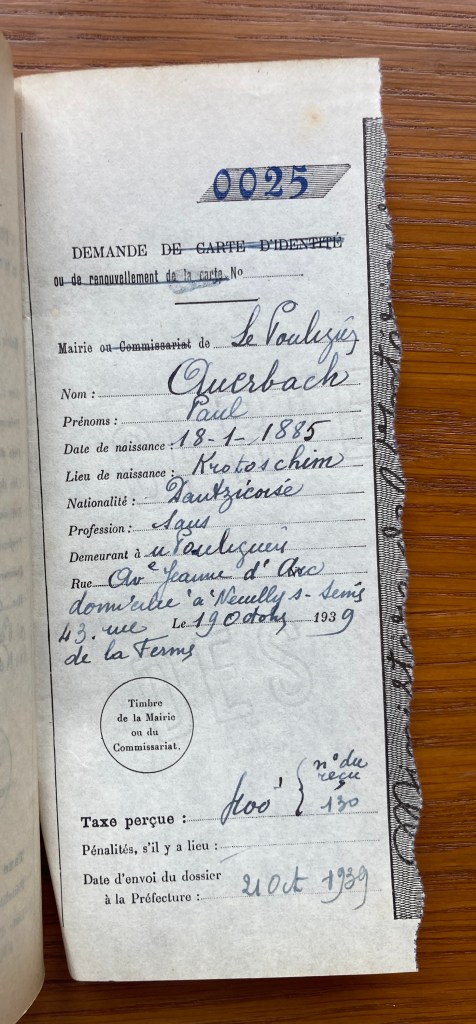 0025
DEMANDE DE CARTE D'IDENTITÉ
ou de renouvellement de la carte No
Mairie ou Commissariat de Le Pouliguen
Nom : Auerbach
Prénoms : Paul
Date de naissance : 18-1-1885
Lieu de naissance : Krotoschim
Nationalité : Dantzicoise
Profession : Sans
Demeurant à Pouliguen
Rue Ave Jeanne d'Arc
domicilié à Neuilly s-Seine
43. rue Le 19 Octobre 1939
de la Ferme
Timbre
de la Mairie
ou du
Commissariat.
n° du
reçu
Taxe perçue : { 130
Pénalités, s'il y a lieu :
Date d'envoi du dossier
à la Préfecture : 21 Oct 1939